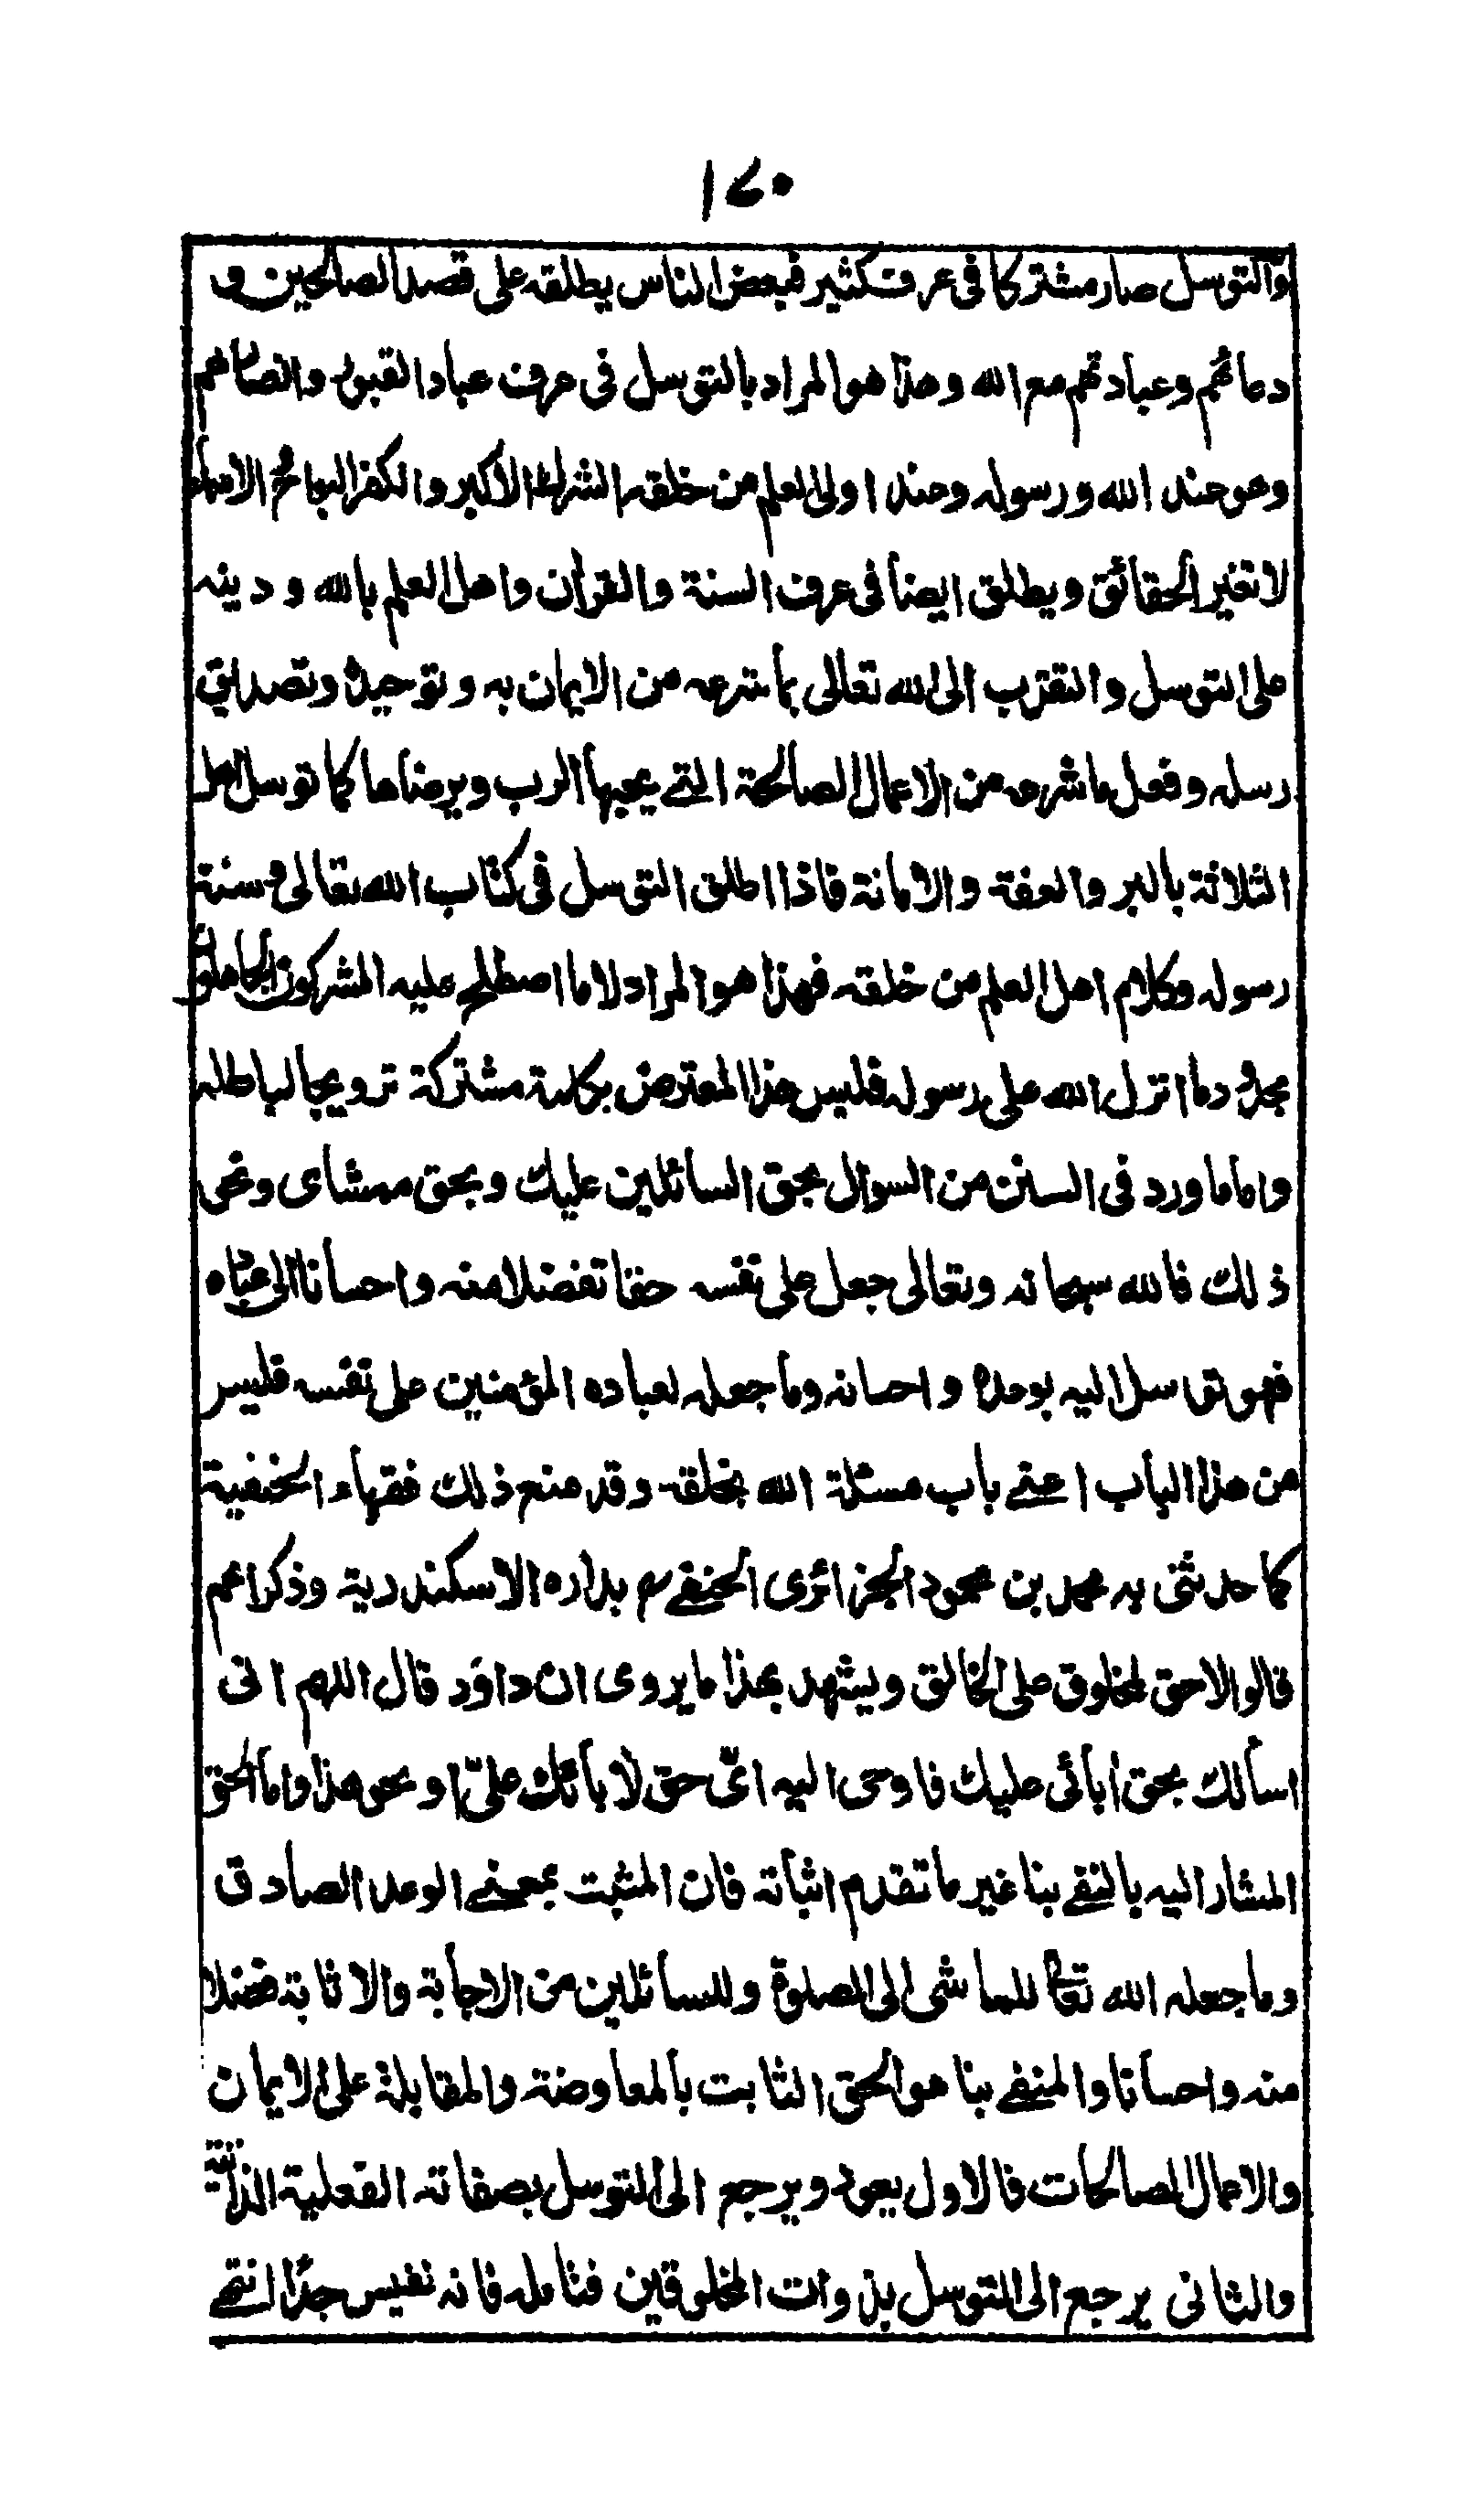 ١٤٠
والتوسل صار مشتركا في عرف كثير فبعض الناس يطلقه على قصد الصالحين و
دعائهم وعبادتهم مع الله وهذا هو المراد بالتوسل في عرف عباد القبور وانصارهم
وهو عند الله ورسوله وعند اولى العلم من خلقه الشرك الاكبر والكفر البواح والاسماء
لا تغير الحقائق ويطلق ايضا في عرف السنة والقرآن واهل العلم بالله و دينه
على التوسل والتقرب الى الله تعالى بما شرعه من الايمان به وتوحيده وتصديق
رسله وفعل ما شرعه من الاعمال الصالحة التي يحبها الرب ويرضاها كما توسل اهل
الثلاثة بالبر والعفة والامانة فاذا اطلق التوسل في كتاب الله تعالى وسنة
رسوله وكلام اهل العلم من خلقه فهذا هو المراد لا ما اصطلح عليه المشركون الجاهلون
بحدود ما انزل الله على رسوله فلبس هذا المعترض بكلمة مشتركة ترويجا لباطله
واما ما ورد في السنن من السوال بحق السائلين عليك وبحق ممشاي ونحو
ذلك فالله سبحانه وتعالى جعل على نفسه حقا تفضلا منه واحسانا الى عباده
فهو توسل اليه بوعده واحسانه وما جعله لعباده المؤمنين على نفسه فليس
من هذا الباب اعني باب مسئلة الله بخلقه وقد منع ذلك فقهاء الحنفية
كما حدثني به محمد بن محمود الجزائري الحنفي رح بداره الاسكندرية وذكر انهم
قالوا لا حق لمخلوق على الخالق ويشهد لهذا ما يروى ان داؤد قال اللهم انى
اسألك بحق آبائى عليك فاوحى اليه اىّ حق لآبائك علىّ او نحو هذا واما الحق
المشار اليه بالنفي هنا غير ما تقدم اثباته فان المثبت بمعنى الوعد الصادق
وما جعله الله تعالى للماشى الى الصلوة وللسائلين من الاجابة والاثابة فضلا
منه واحسانا والمنفي هنا هو الحق الثابت بالمعاوضة والمقابلة على الايمان
والاعمال الصالحات فالاول يعود ويرجع الى التوسل بصفاته الفعلية الذاتية
والثانى يرجع الى التوسل بذوات المخلوقين فتامله فانه نفيس جدًا انتهى